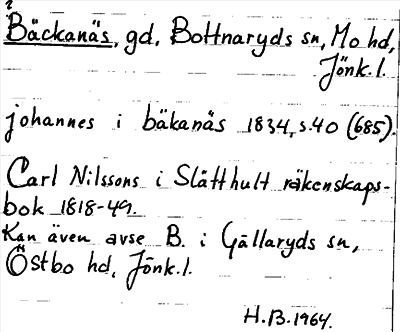 Bäckanäs, gd, Bottnaryds sn, Mo hd,
Jönk. l.
johannes i bäkanäs 1834, s. 40 (685).
Carl Nilssons i Slätthult räkenskaps-
bok 1818-49.
Kan även avse B. i Gällaryds sn,
Östbo hd, Jönk. l.
H.B. 1964.